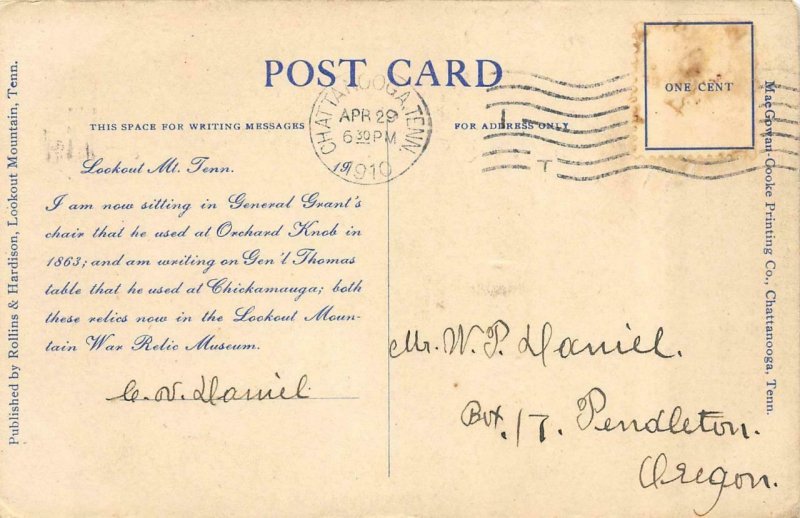 POST CARD
THIS SPACE FOR WRITING MESSAGES
FOR ADDRESS ONLY
ONE CENT
CHATTANOOGA, TENN.
APR 29
6 30 PM
1910
Lookout Mt. Tenn.
I am now sitting in General Grant's
chair that he used at Orchard Knob in
1863; and am writing on Gen'l Thomas
table that he used at Chickamauga; both
these relics now in the Lookout Moun-
tain War Relic Museum.
C. V. Daniel
Mr. W. P. Daniel.
Box 17. Pendleton.
Oregon.
Published by Rollins & Hardison, Lookout Mountain, Tenn.
MacGowan-Cooke Printing Co., Chattanooga, Tenn.